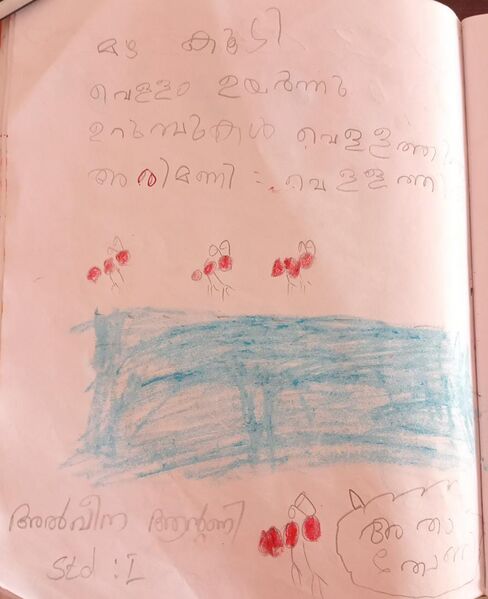 മഴ കൂടി
വെള്ളം ഉയർന്നു
ഉറുമ്പുകൾ വെള്ളത്തി
അരിമണി : വെള്ളത്തി
അൽവീന ആന്റണി
Std : I
അതാ
തോണി